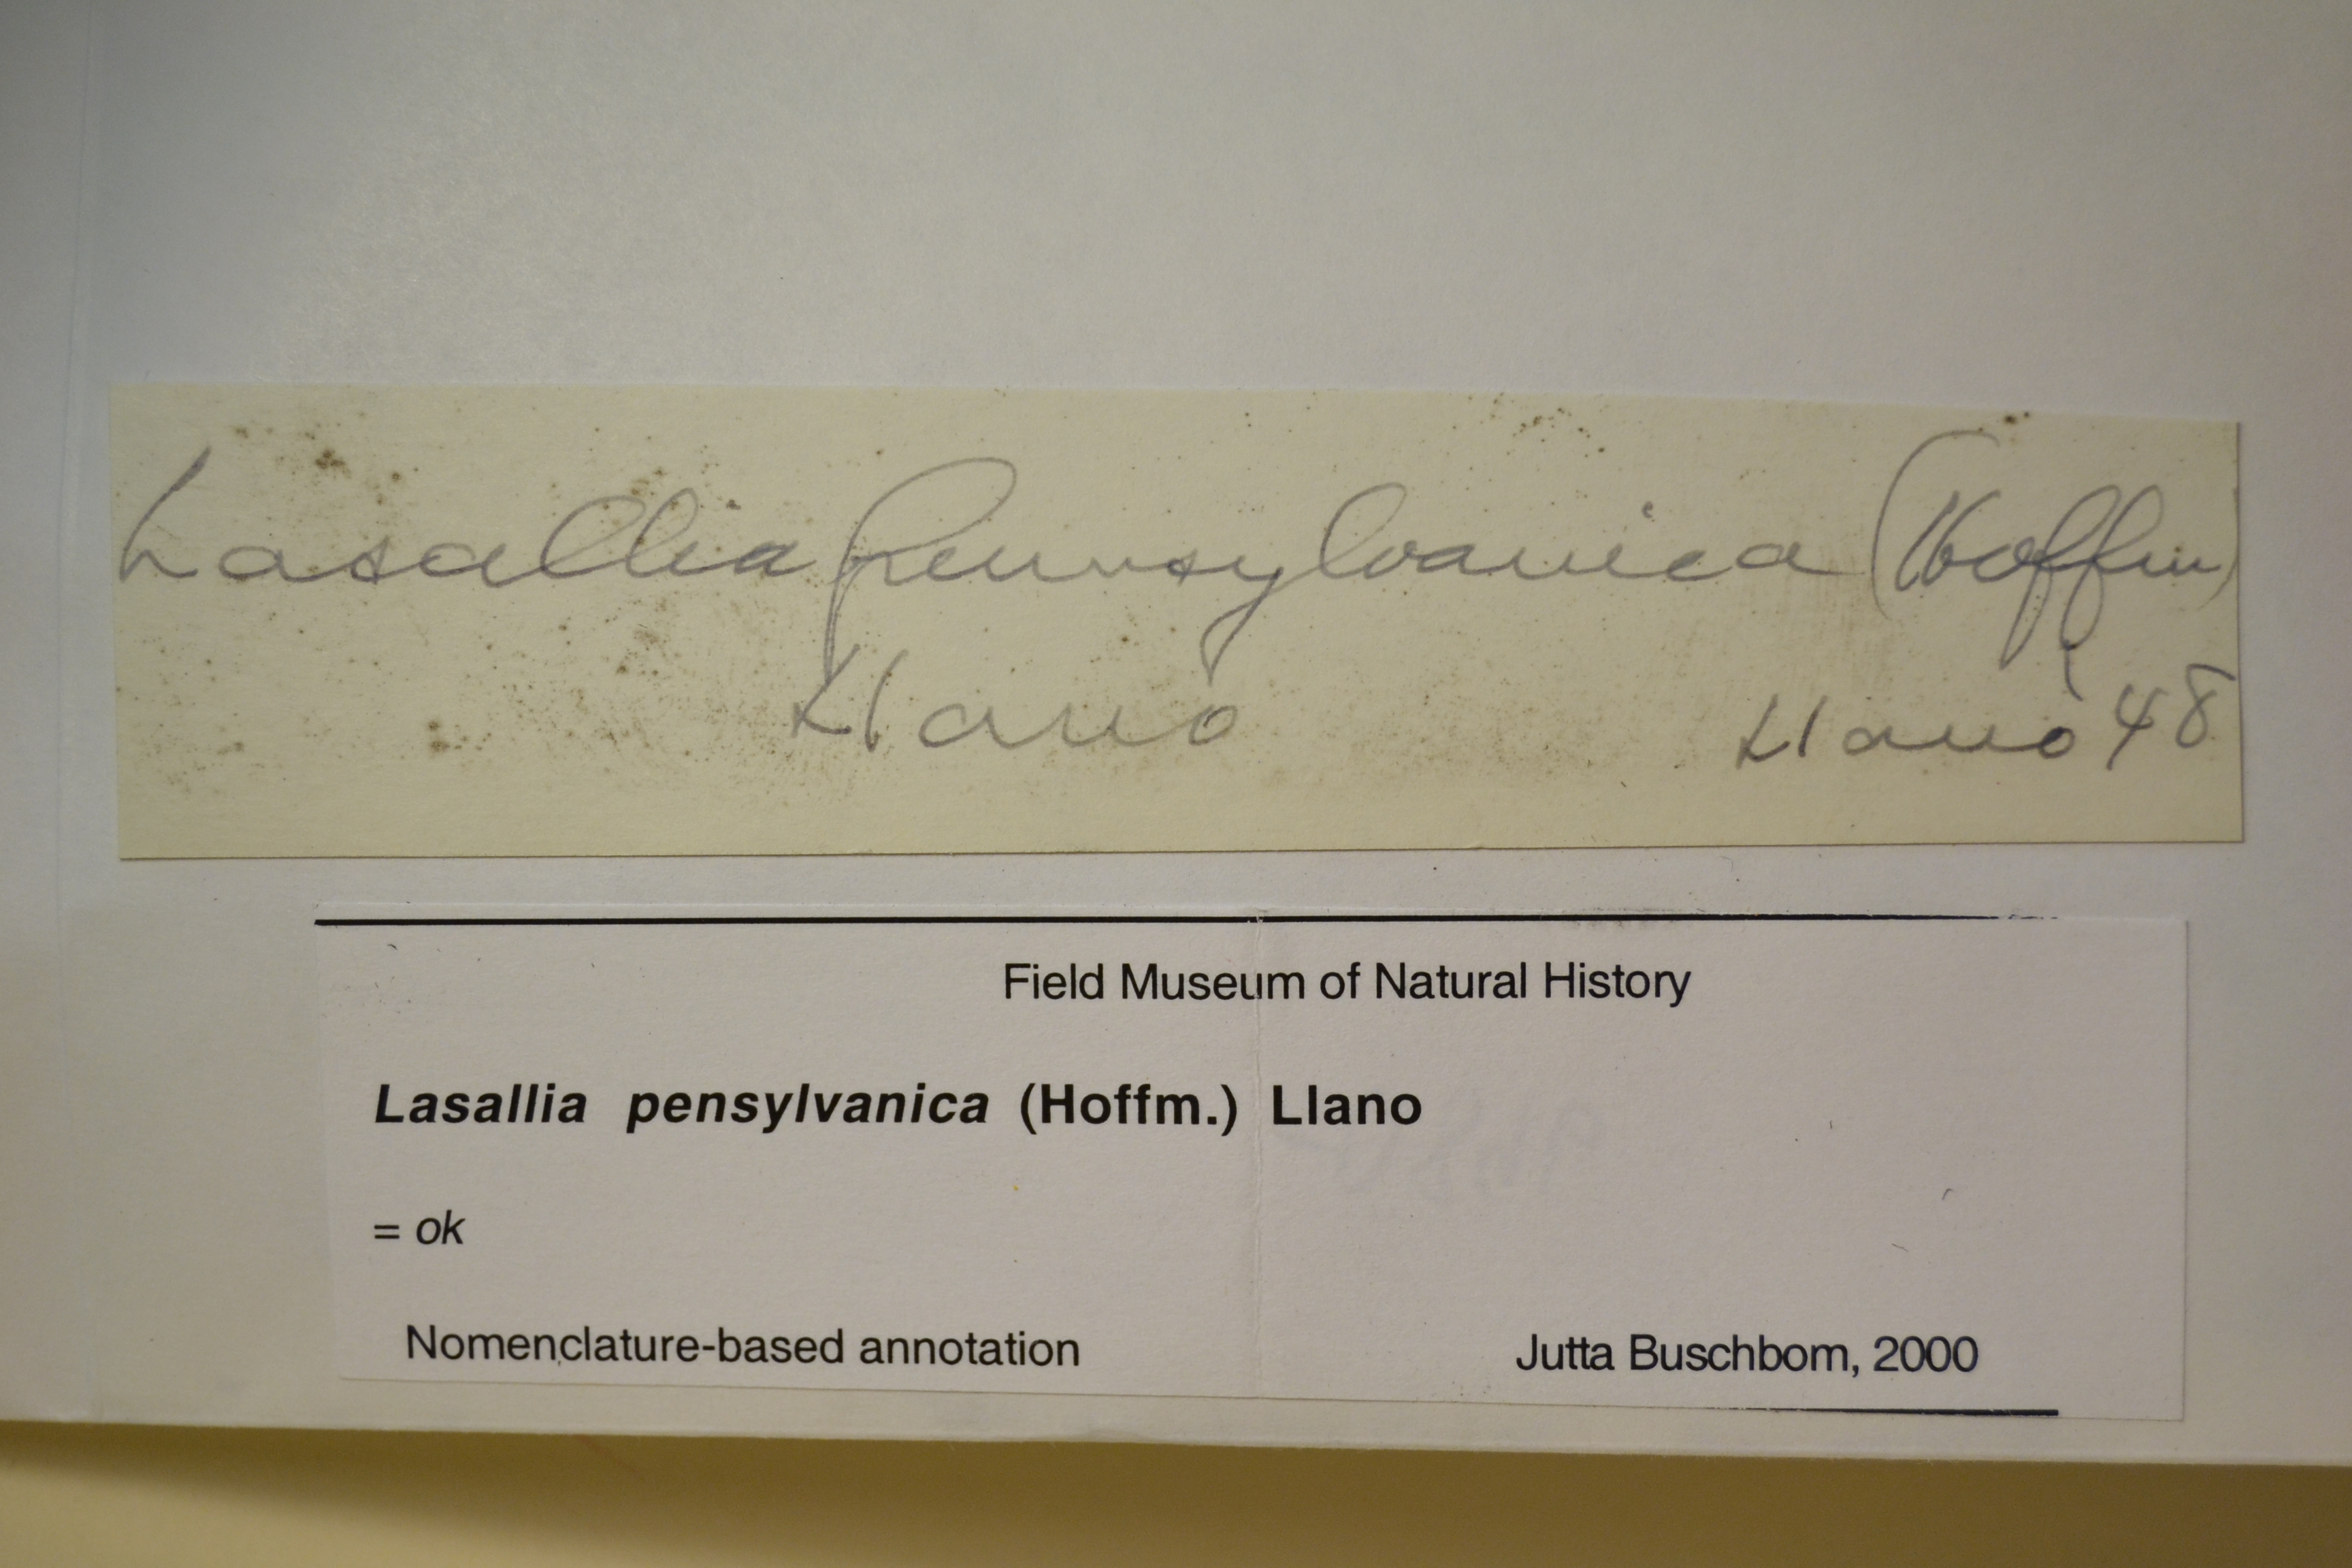 Lasallia Pennsylvanica (Hoffm)
Llano
Llano '48
Field Museum of Natural History
Lasallia pensylvanica (Hoffm.) Llano
= ok
Nomenclature-based annotation
Jutta Buschbom, 2000